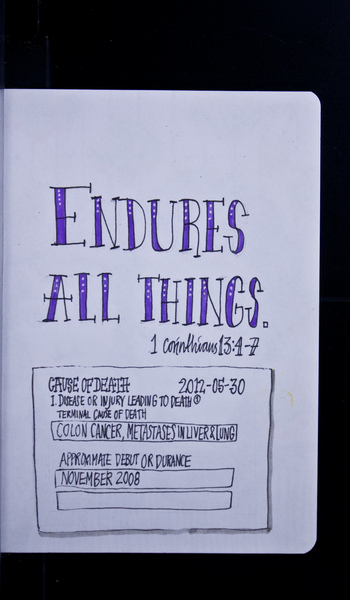 ENDURES
ALL THINGS.
1 Corinthians 13:4-7
CAUSE OF DEATH 2012-05-30
1. DISEASE OR INJURY LEADING TO DEATH ①
TERMINAL CAUSE OF DEATH
COLON CANCER, METASTASES IN LIVER & LUNG
APPROXIMATE DEBUT OR DURANCE
NOVEMBER 2008